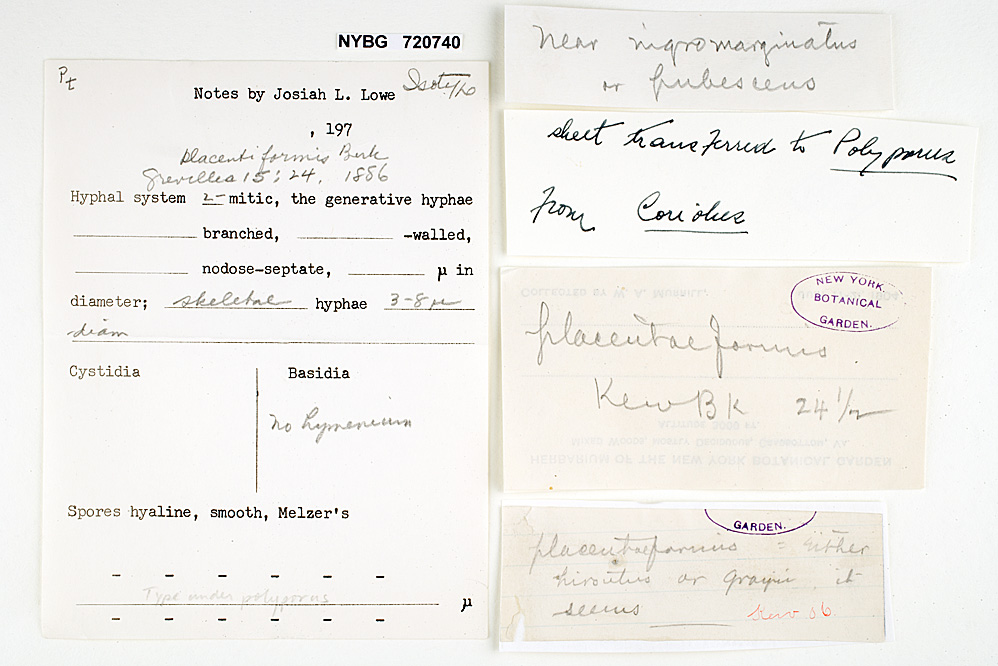 NYBG 720740
Pt
Isotype
Notes by Josiah L. Lowe
, 197
placentiformis Berk
Grevillea 15: 24. 1886
Hyphal system 2-mitic, the generative hyphae
branched, -walled,
nodose-septate, µ in
diameter; skeletal hyphae 3-8µ
diam
Cystidia
Basidia
no hymenium
Spores hyaline, smooth, Melzer's
Type under polyporus
µ
Near nigromarginatus
or pubescens
sheet transferred to Polyporus
From Coriolus
COLLECTED BY W. A. MURRILL,
NEW YORK
BOTANICAL
GARDEN.
placentaeformis
Kew BK 24 1/2
ALTITUDE 3000 FT.
MIXED WOODS, MOSTLY DECIDUOUS, VA.
HERBARIUM OF THE NEW YORK BOTANICAL GARDEN
GARDEN.
placentaeformis = either
hirsutus or Grayii it
seems
Kew 06